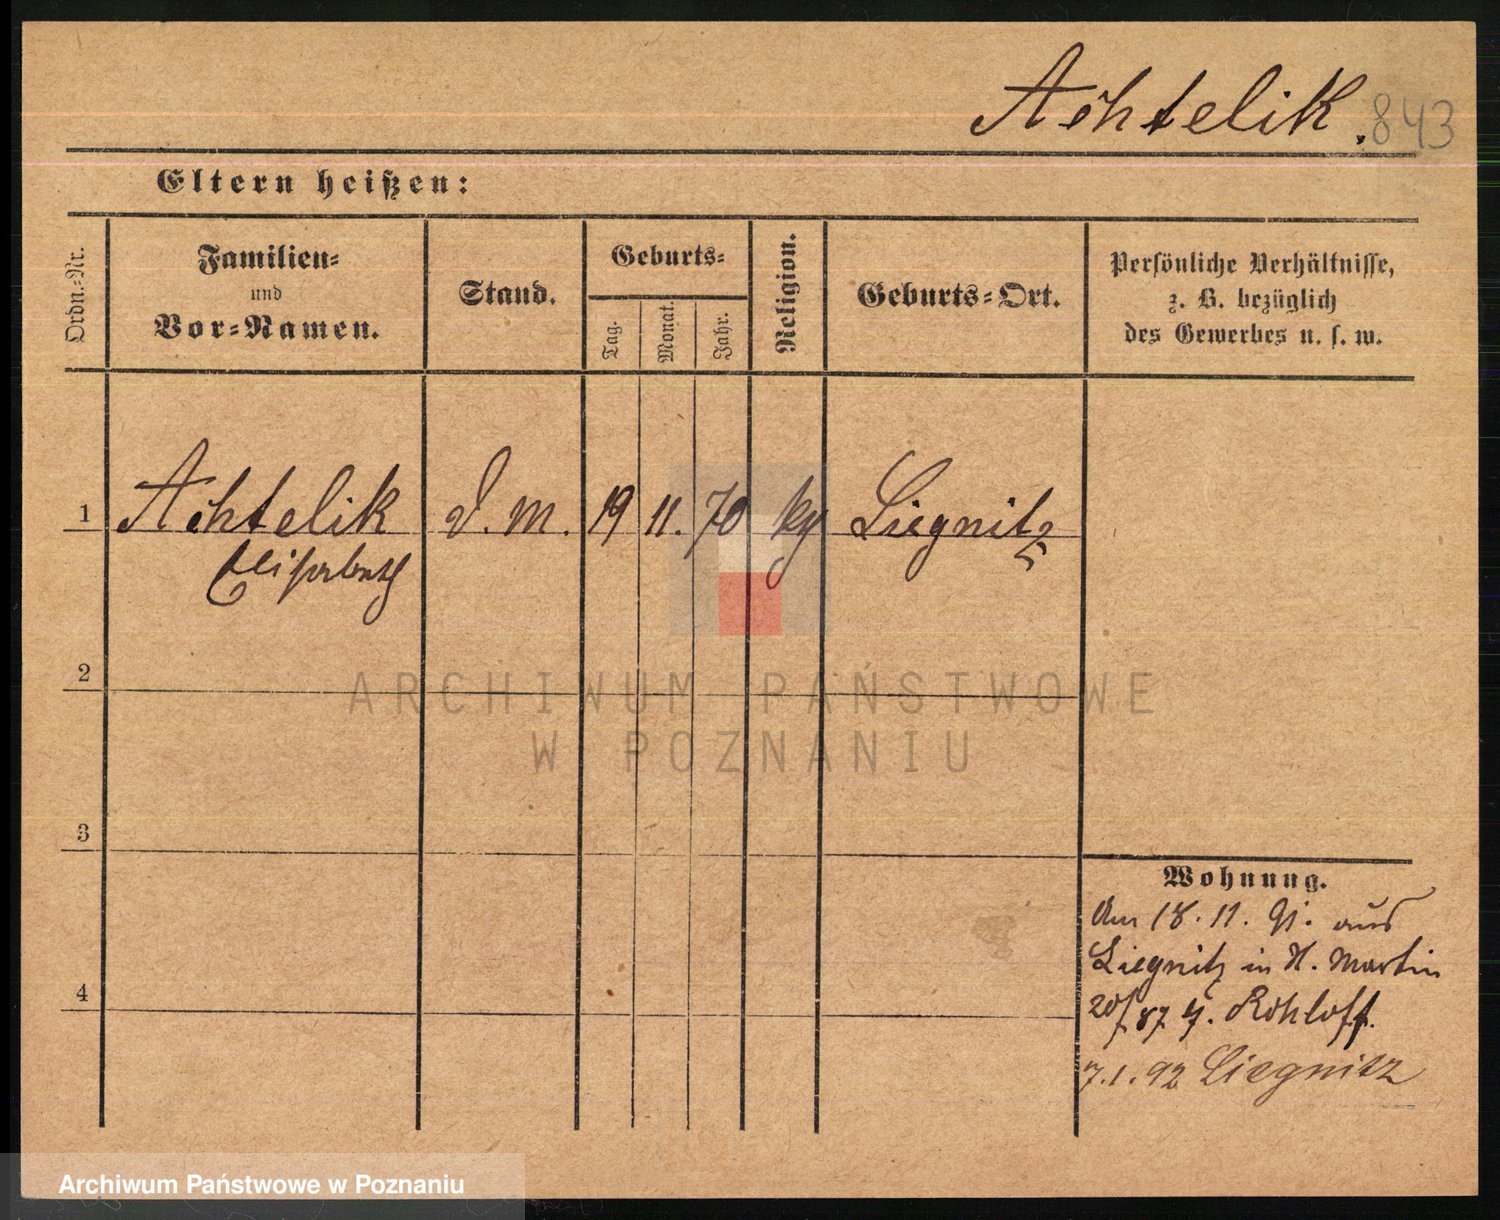 Achtelik. 843
Eltern heißen:
Ordn.-Nr.
Familien-
und
Vor-Namen.
Stand.
Geburts-
Tag.
Monat.
Jahr.
Religion.
Geburts-Ort.
Persönliche Verhältnisse,
z. B. bezüglich
des Gewerbes u. s. w.
1 Achtelik d. M. 19 11. 70 kg Liegnitz
Elisabeth
2
ARCHIWUM PAŃSTWOWE
W POZNANIU
3
Wohnung.
Am 18. 11. 91. aus
Liegnitz in St. Martin
20/87 Rohloff.
4
7.1.92 Liegnitz
Archiwum Państwowe w Poznaniu